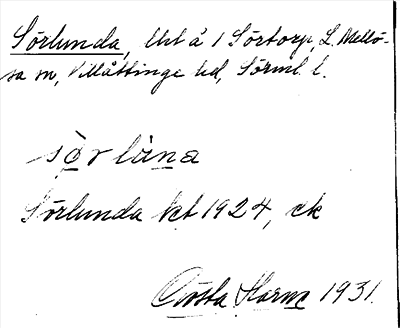 Sörlunda, lht å 1 Sörtorp, L. Mellö-
sa sn, Villåttinge hd, Sörml. l.
sörlùna
Sörlunda kt 1924, ek
Gösta Harm 1931.